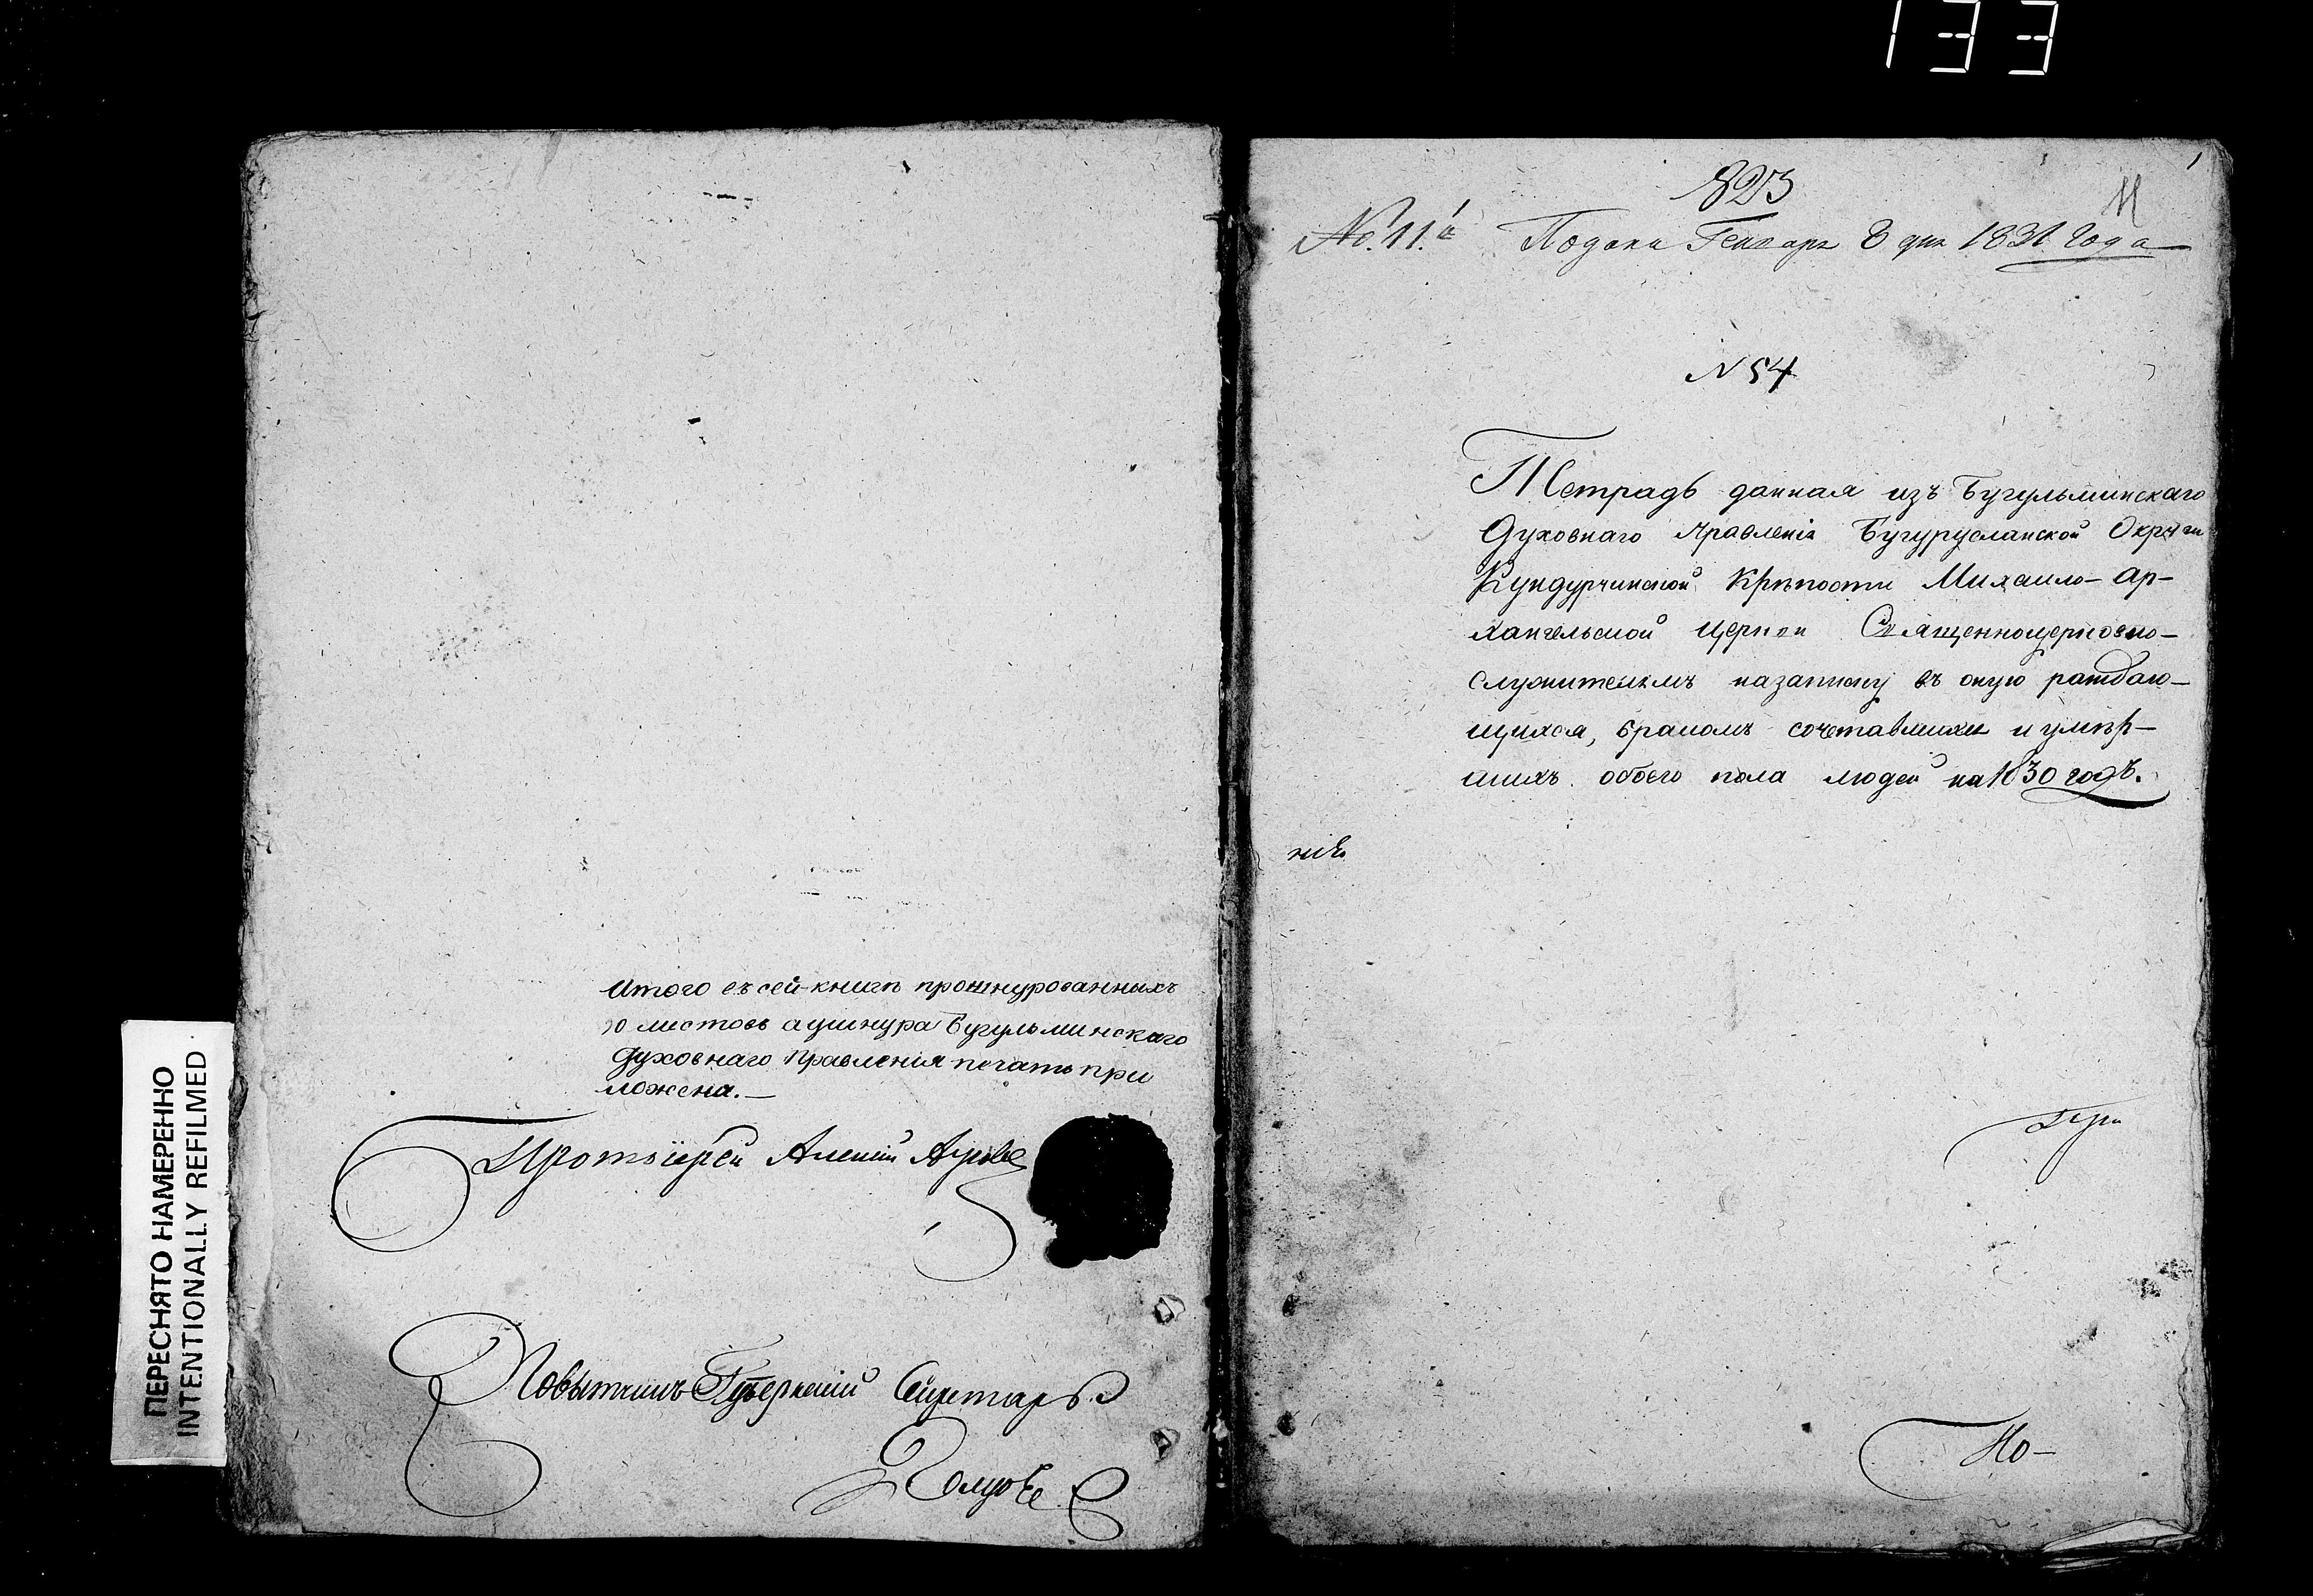 133
Итого въ сей книгѣ прошнурованныхъ
листовъ а у шнура Бугульминскаго
Духовнаго Правленія печать при
ложена.—
Протоіерей Алексій
Повытчикъ Губернскій Секретарь
ПЕРЕСНЯТО НАМЕРЕННО
INTENTIONALLY REFILMED
1
823
11
№ 11.й Подана Генваря 8 дня 1831 года
N 54
Тетрадь данная изъ Бугульминскаго
Духовнаго Правленія Бугурусланской Округи
Кундурчинской Крѣпости Михаило-Ар-
хангельской Церкви Священноцерковно-
служителямъ на записку въ оную раждаю-
щихся, бракомъ сочетавшихся и умѣр-
шихъ обоего пола людей на 1830 годъ.
ніе
По-